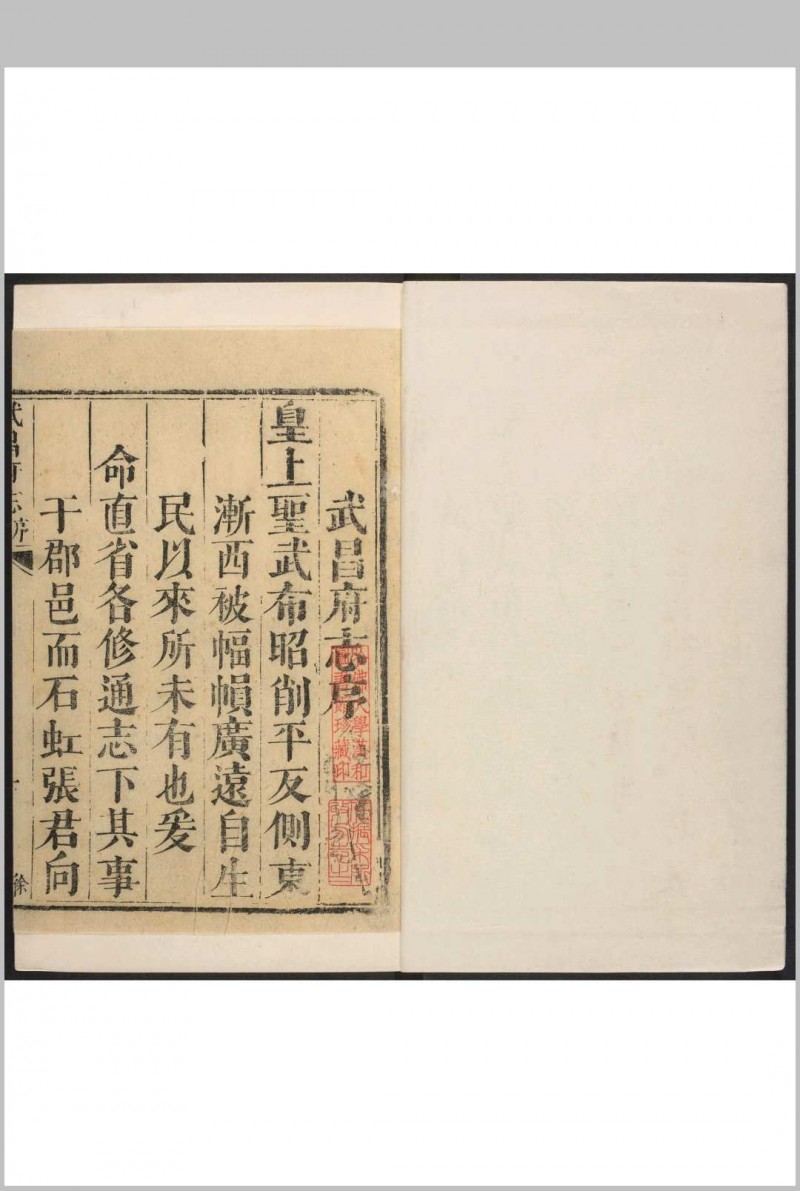 武昌府志序
皇上聖武布昭削平反側東
漸西被幅幀廣遠自生
民以來所未有也爰
命直省各修通志下其事
于郡邑而石虹張君向
武昌府志序
一
徐
大學漢和
珍藏印